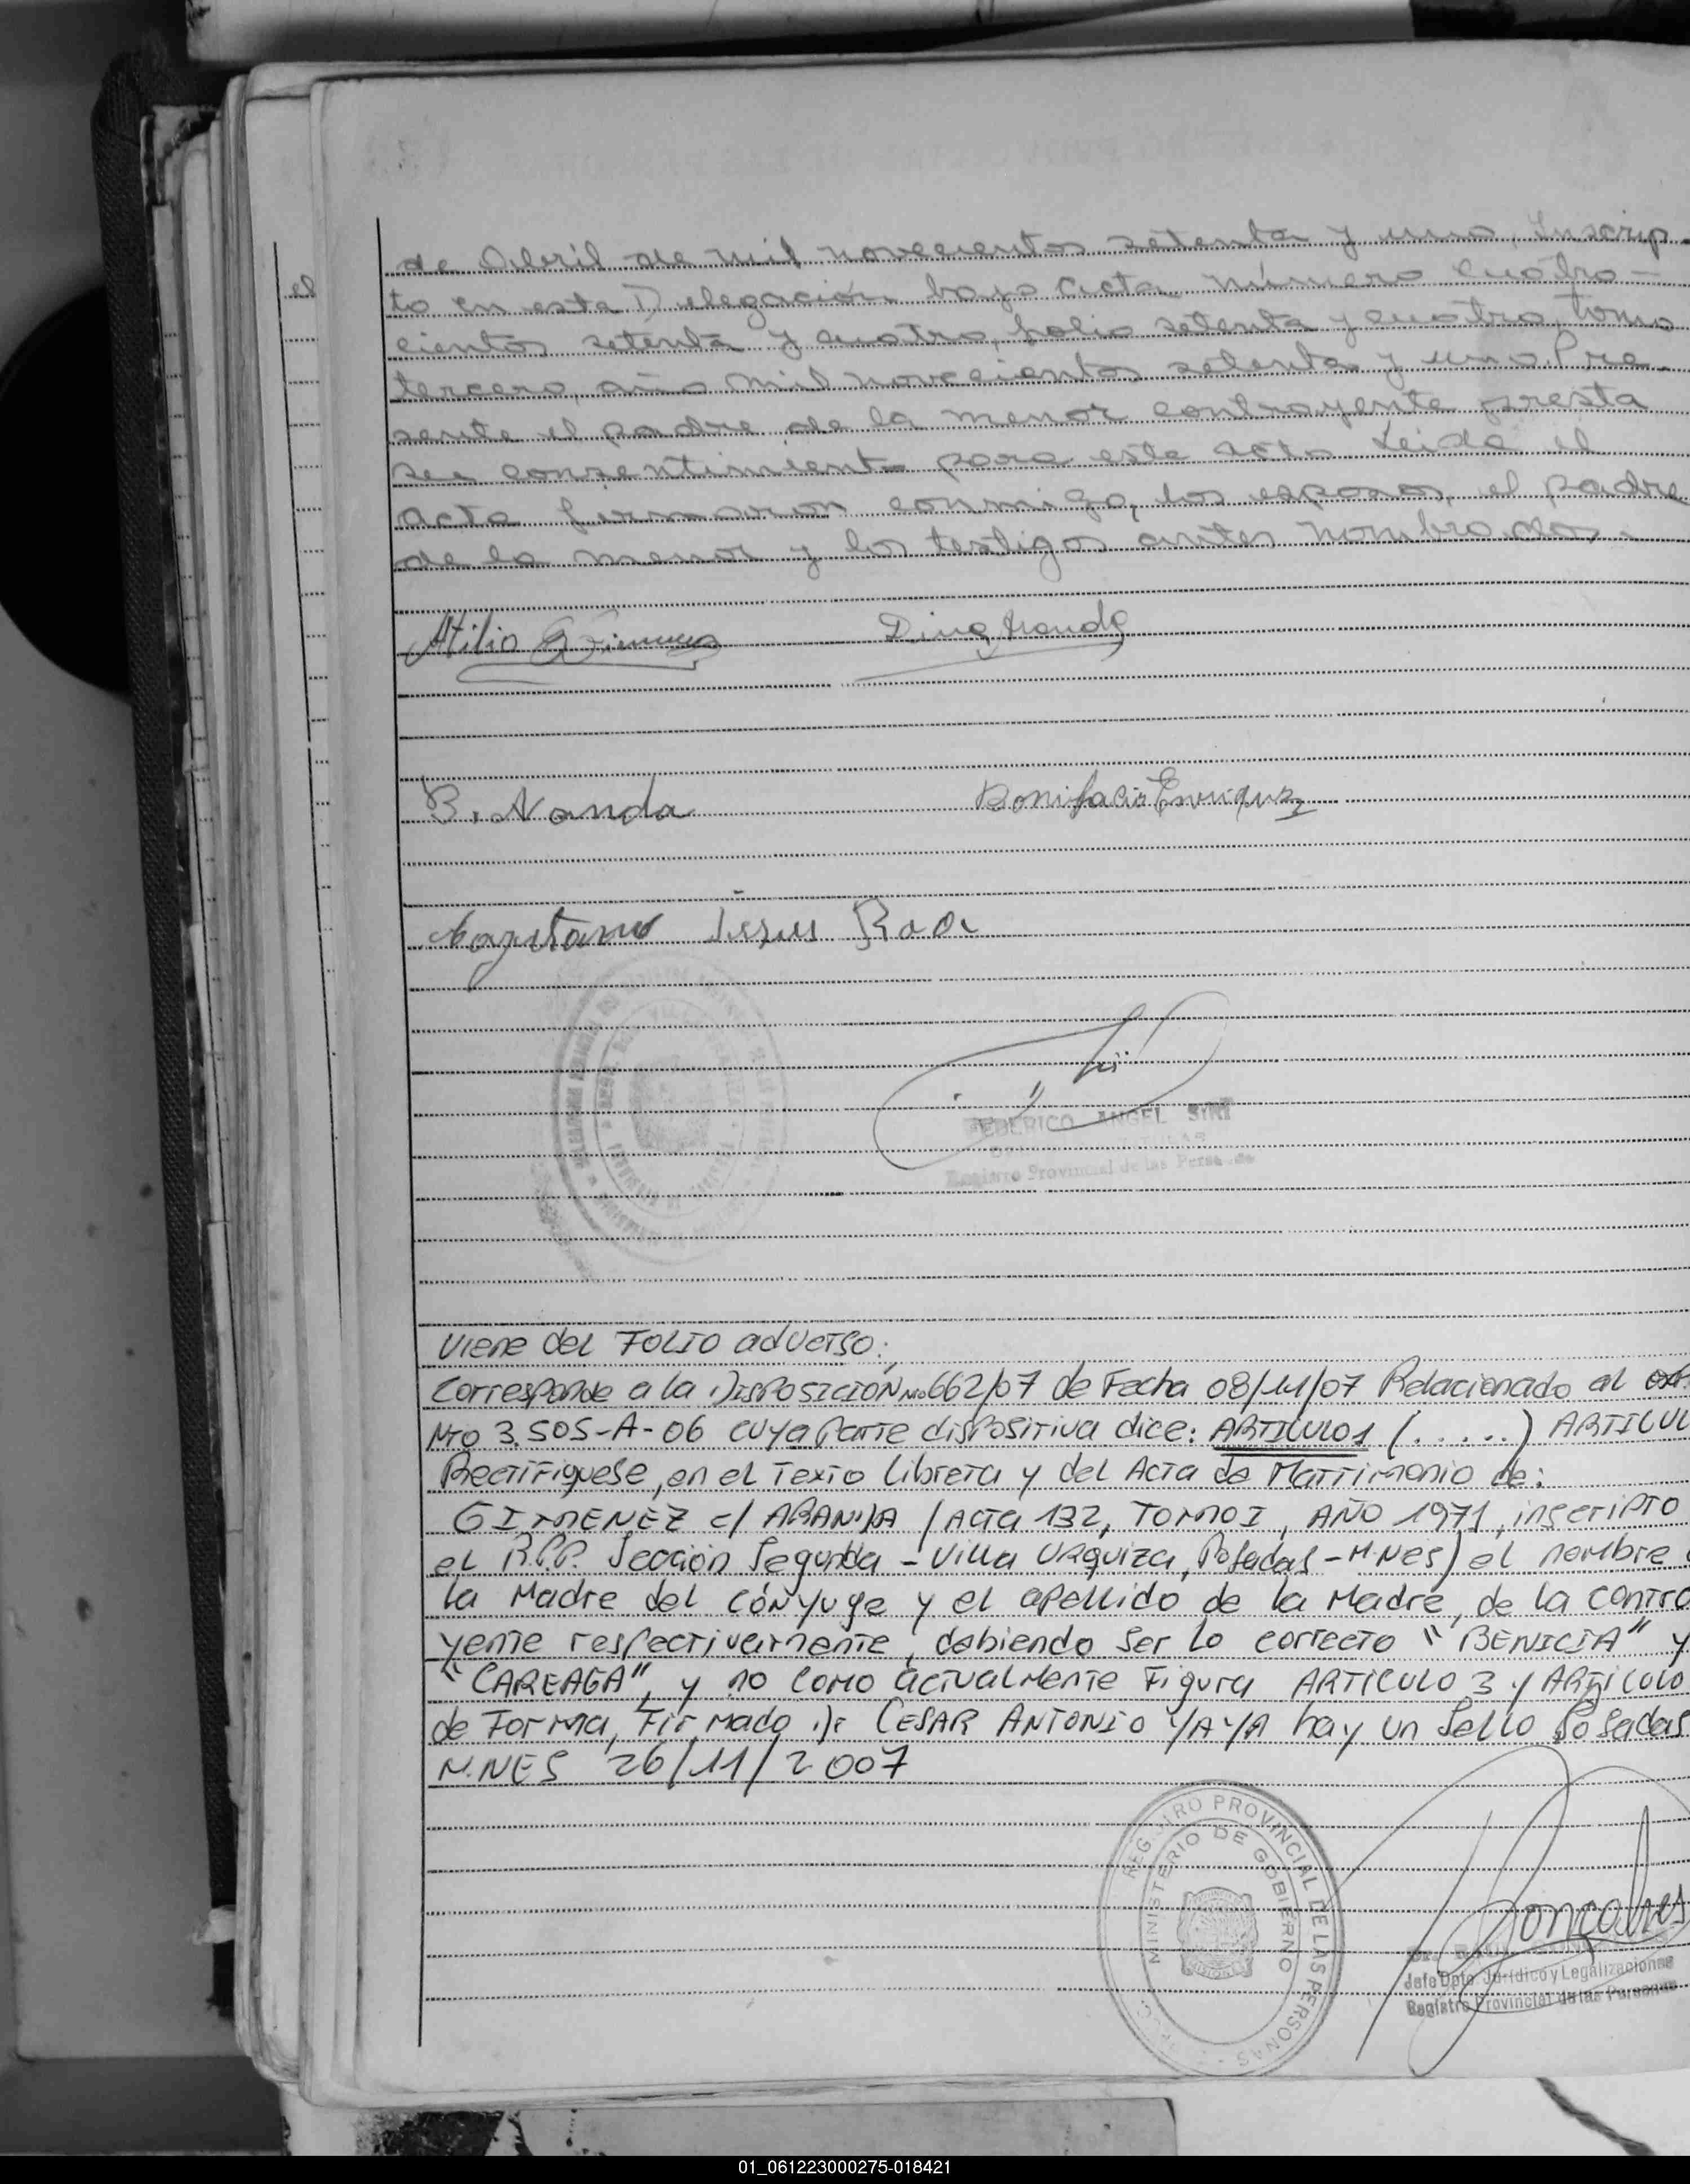 de Abril de mil novecientos setenta y uno, Inscrip-
to en esta Delegación bajo acta número cuatro-
cientos setenta y cuatro, folio setenta y cuatro, tomo
tercero, año mil novecientos setenta y uno. Pre-
sente el padre de la menor contrayente presta
su consentimiento para este acto. Leida el
el
acta firmaron conmigo, los esposos, el padre
de la menor y los testigos antes nombrados.
Atilio Gimenez
B. Aranda
Bonifacio Enriquez
Jesus Roa
FEDERICO ANGEL SIRI
Registro Provincial de las Personas
Viene del FOLIO adverso:
Corresponde a la DISPOSICIÓN No 662/07 de Fecha 08/11/07 Relacionado al
Nro 3.505-A-06 cuya parte dispositiva dice: ARTICULO 1 (.....) ARTICUL
Rectifiquese, en el Texto libreta y del Acta de Matrimonio de:
GIMENEZ c/ ARANDA / Acta 132, TOMO I, AÑO 1971, inscripto
el R.P.P. Sección Segunda - Villa Urquiza, Posadas - M.nes) el nombre
la Madre del cónyuge y el apellido de la Madre, de la contra
yente respectivamente, debiendo ser lo correcto "BENICIA" y
"CAREAGA", y no como actualmente Figura ARTICULO 3 y ARTICULO
de Forma, Firmado Dr CESAR ANTONIO YAYA hay un sello Posadas
M.NES 26/11/2007
REGISTRO PROVINCIAL DE LAS PERSONAS
MINISTERIO DE GOBIERNO
Gonçalves
Jefe Dpto. Jurídico y Legalizaciones
Registro Provincial de las Personas
01_061223000275-018421